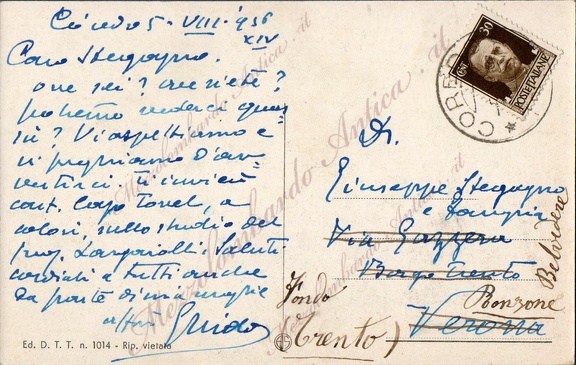 5 - VIII - 1936
XIV
Caro Stegagno,
ove sei? che n'è te?
potremo vederci quas
sù? Vi aspettiamo e
vi preghiamo d'av-
vertirci. Ti invierò
cart. Lago Tovel, a
colori, sullo studio del
prof. Largaiolli. Saluti
cordiali a tutti anche
da parte di mia moglie
Guido
Ed. D. T. T. n. 1014 - Rip. vietata
CORREDO
POSTE ITALIANE
Dr.
Giuseppe Stegagno
e famiglia
Via Gazzera
Borgo Trento
Verona
Belvedere
Fondo
Ronzone
(Trento)
MarcoLombardo Antica.it